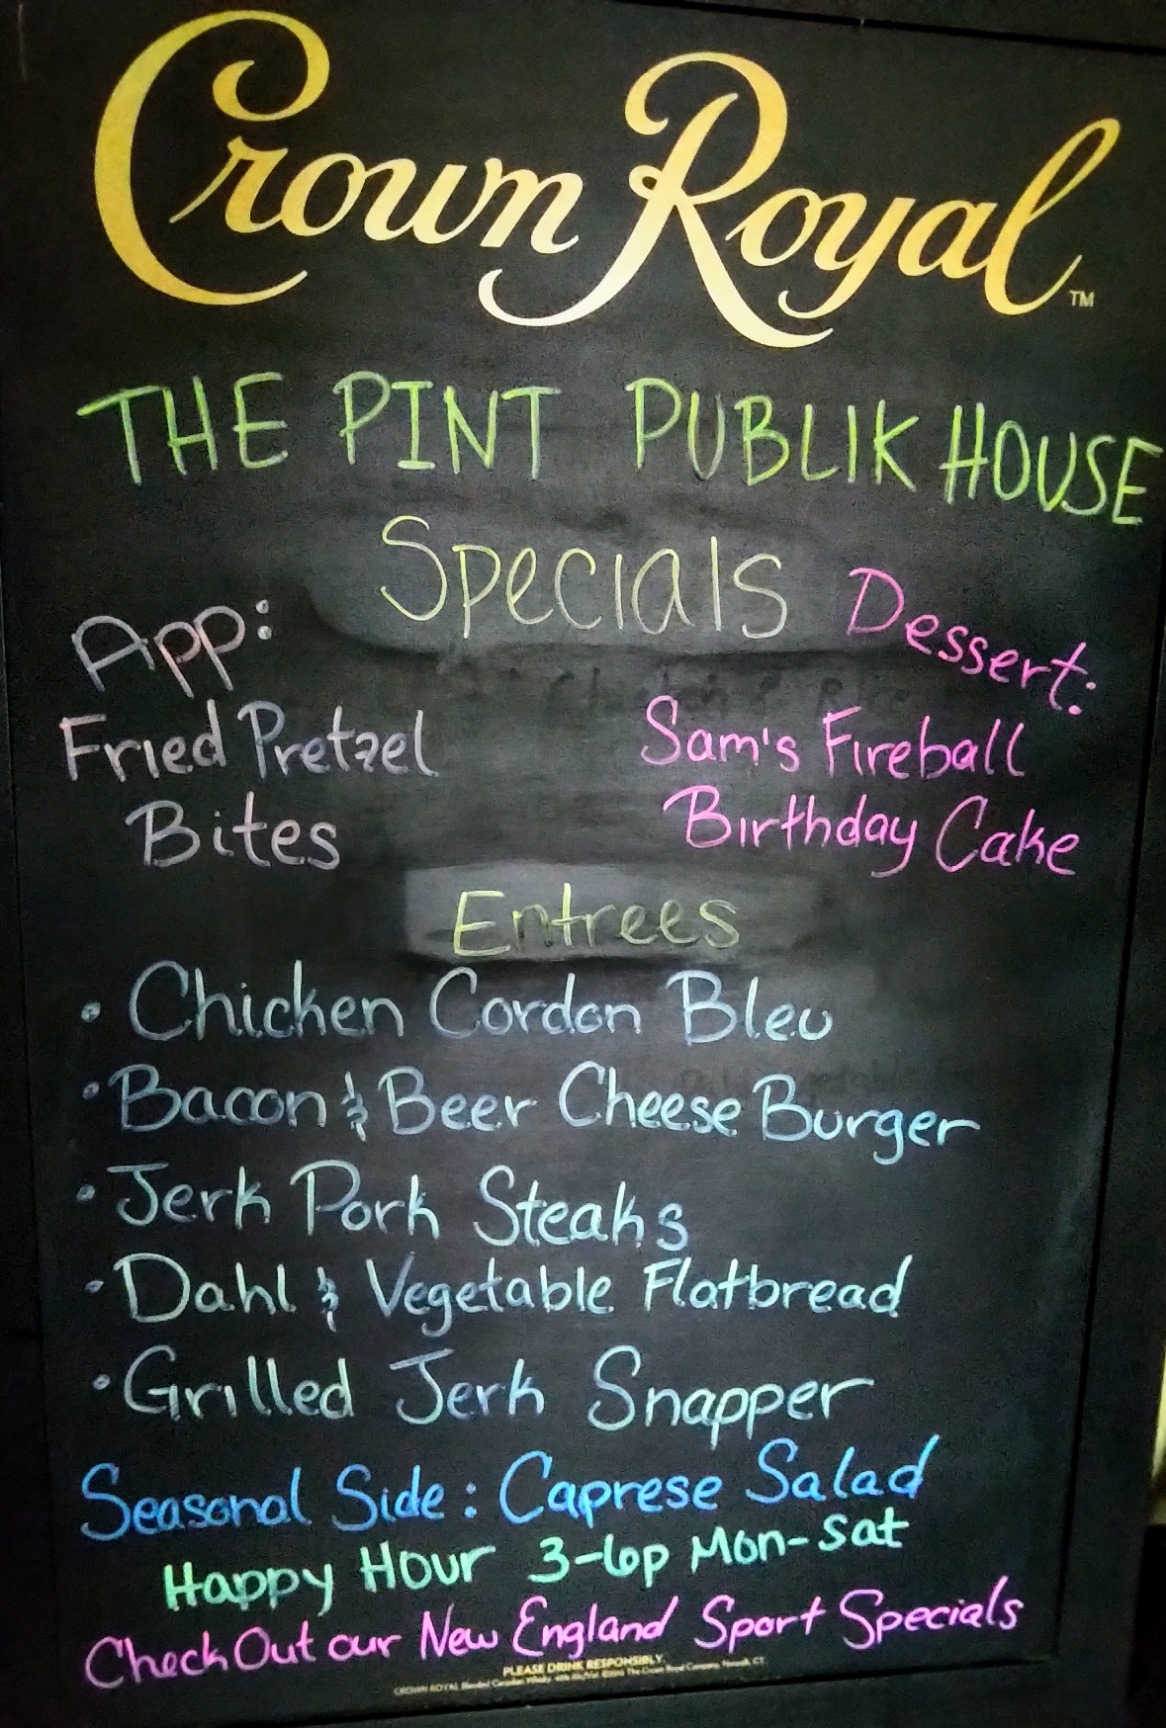 Crown Royal™
THE PINT PUBLIK HOUSE
Specials
App:
Fried Pretzel
Bites
Dessert:
Sam's Fireball
Birthday Cake
Entrees
• Chicken Cordon Bleu
• Bacon & Beer Cheese Burger
• Jerk Pork Steaks
• Dahl & Vegetable Flatbread
• Grilled Jerk Snapper
Seasonal Side: Caprese Salad
Happy Hour 3-6p Mon-Sat
Check Out our New England Sport Specials
PLEASE DRINK RESPONSIBLY.
CROWN ROYAL Blended Canadian Whisky. The Crown Royal Company, Norwalk, CT.